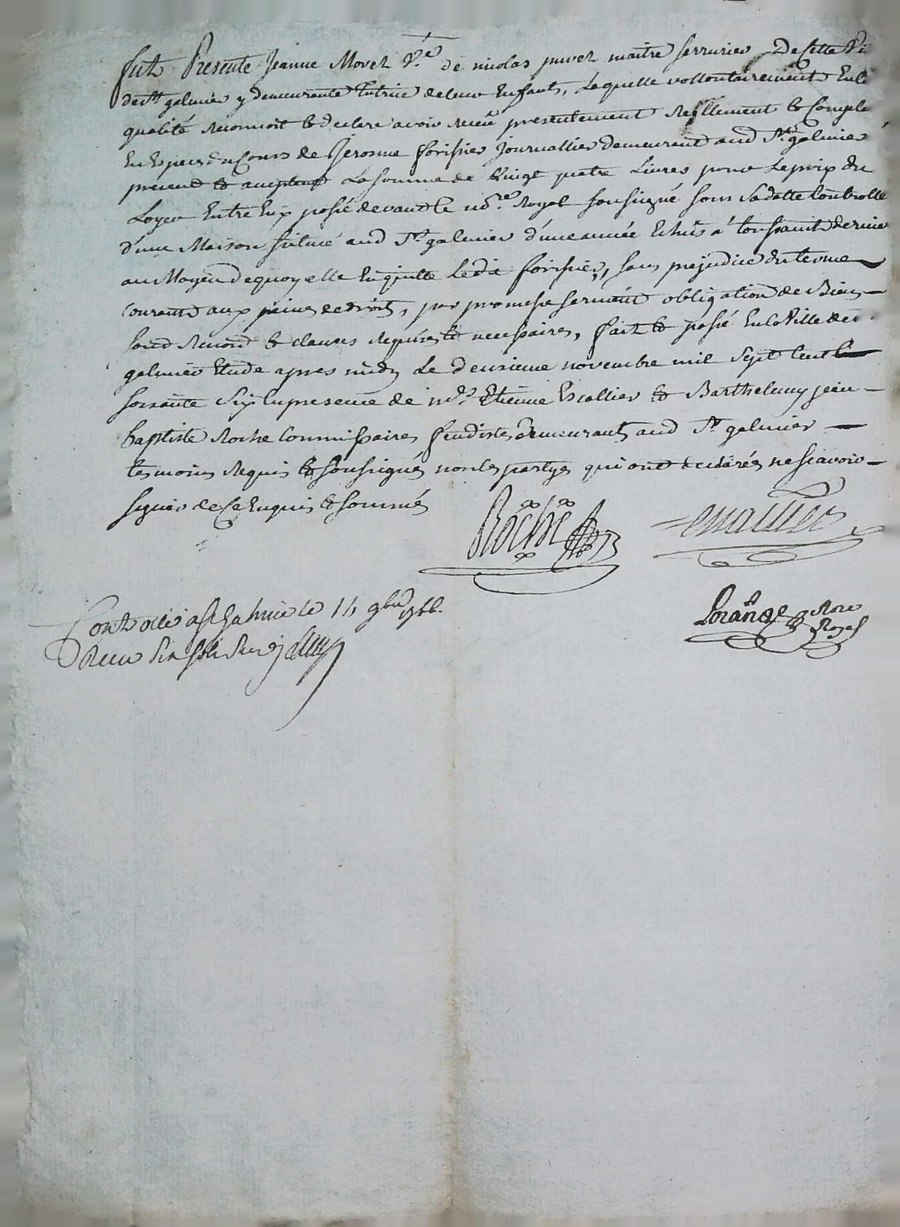 fut Presente Jeanne Moret V.e de nicolas juvet maitre serrurier De cette Vi
de St galmier y demeurante tutrice de leurs Enfants, Laquelle vollontairement Enla
qualité reconnoit et declare avoir receu presentement reellement et Comptе
En Especes du Cours de Jerosme forissier Journallier demeurant aud St galmier
présend et aceptent La somme de Vingt quatre Livres pour Le prix du
Loyer Entre Eux passé devant le no.re Royal soussigné sous sa datte Controllé
d'une Maison situee aud St galmier d'une année Echuë à toussaint derniere
au Moyen de quoy elle En quitte Ledit forissier, sans prejudice du terme
Courant aux peines de droit, par promesse serment obligation de Biens
soumd renond et clauses requises et necessaires, fait et passé En la Ville de St
galmier Etude apres midy Le deuxieme novembre mil sept Cent
soixante six En presence de m.rs Etienne Escallier et Barthelemy jean
baptiste Roche Commissaires feudistes demeurants aud St galmier
temoins requis et soussignés non les partyes qui ont declarés ne scavoir
signer de Ce Enquis et sommés
Roche
Lorange no.re Royal
Controllé a St Galmie le 14 9bre 1766.
Receu six sols six d